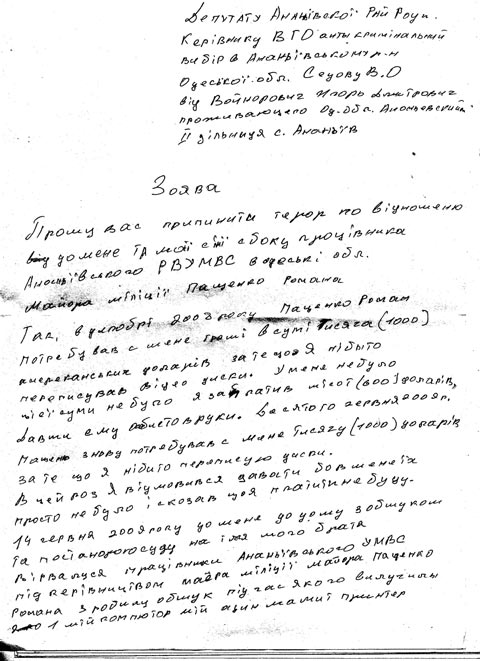 Депутату Ананівської Рай Ради.
Керівнику ВГО антикримінальний
вибір в Ананьївському р-н
Одеської обл. Седову В.О
від Войнорович Игорь Дмитрович
проживающего Од. обл. Ананьевский
II дільниця с. Ананьїв
Зоява
Прошу вас припинити терор по відношеню
до мене та моєї сімї збоку працівника
Ананьївського РВУМВС водеські обл.
Майора міліції Паценко Романа
Так, в 2008 року Паценко Роман
потребував с мене гроші в сумі тисяса (1000)
американських доларів за те що я нібито
переписував відео диски. У мене небуло
цієї суми небуло я заплатив шісот (600) доларів,
давши ему обисто вруки. Десятого червня 2009р.
Паценко знову потребував с мене тисячу (1000) доларів
за те що я нібито переписую диски.
В цей роз я відмовився давати бо вменеїх
просто небуло і сказав що я платити небуду.
14 червня 2009 року до мене до дому з обшуком
та постановою суду на імя мого брата
вірвалися працівники Ананьївського УМВС
під керівництвом майора міліції майора Паценко
Романа зробили обшук під час якого вилучили
1 мій компютор мій один мамий принтер